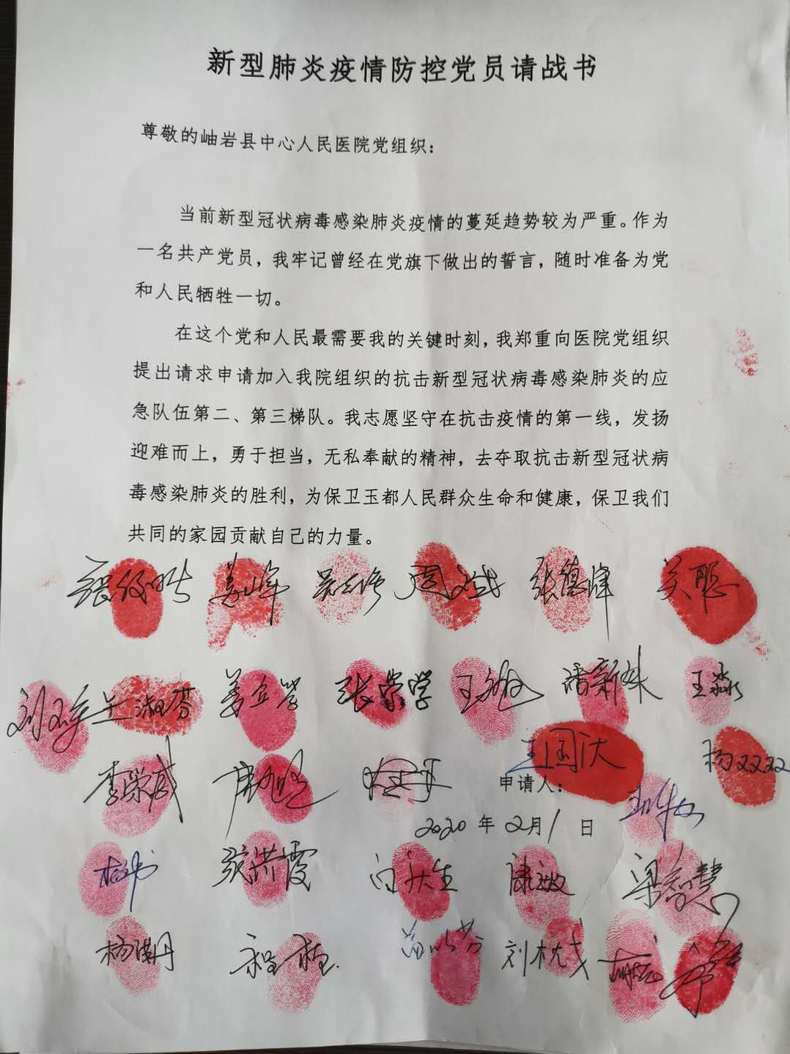 新型肺炎疫情防控党员请战书
尊敬的岫岩县中心人民医院党组织：
当前新型冠状病毒感染肺炎疫情的蔓延趋势较为严重。作为
一名共产党员，我牢记曾经在党旗下做出的誓言，随时准备为党
和人民牺牲一切。
在这个党和人民最需要我的关键时刻，我郑重向医院党组织
提出请求申请加入我院组织的抗击新型冠状病毒感染肺炎的应
急队伍第二、第三梯队。我志愿坚守在抗击疫情的第一线，发扬
迎难而上，勇于担当，无私奉献的精神，去夺取抗击新型冠状病
毒感染肺炎的胜利，为保卫玉都人民群众生命和健康，保卫我们
共同的家园贡献自己的力量。
姜峰 张德峰 关聪
兰淑芬 张崇学 潘新姝 王淼
李荣威 王国庆 杨双双
申请人：
2020 年 2月1 日
张洪霞 向庆生 康敏 梁智慧
杨洪丹 程程 刘忱戈